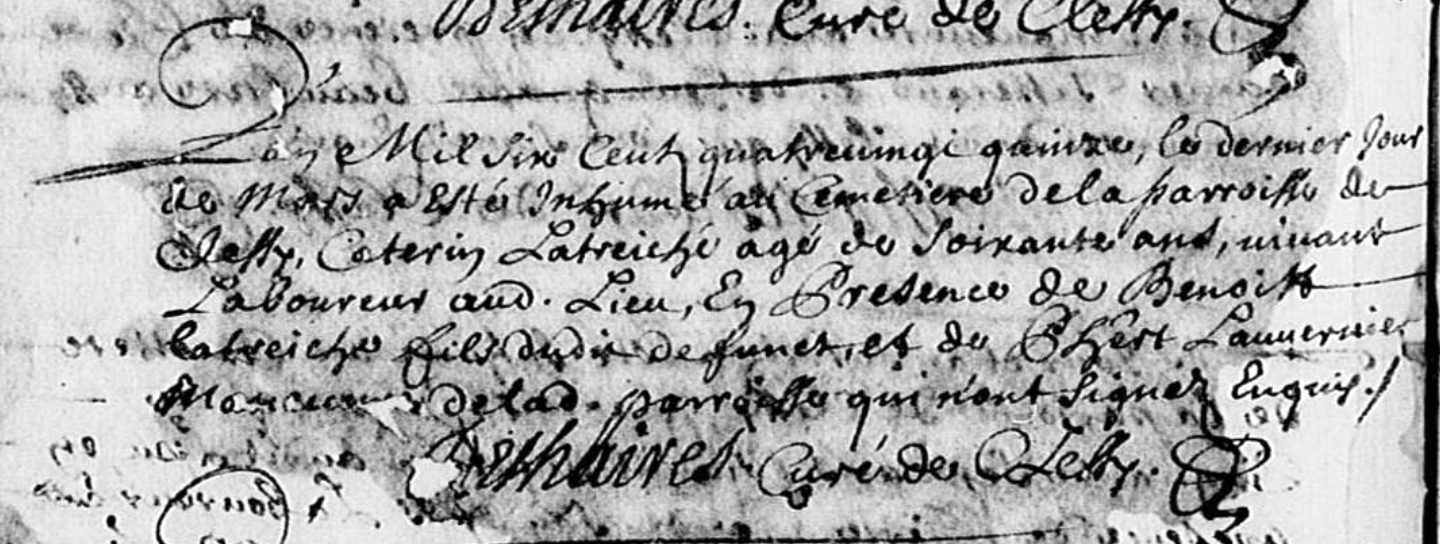 Deshaires. Curé de Clessy.
L'an Mil Six Cent quatreuingt quinze, le dernier Jour
de Mars a Esté Inhumé au Cemetiere de la parroisse de
Clessy, Caterin Latreiche âgé de Soixante ans, uiuant
Laboureur aud. Lieu, En Presence de Benoist
Latreiche fils dudit defunct, et de Phert Lauuernier
Manœuure de lad. parroisse qui n'ont Signéz Enquis./
Deshaires Curé de Clessy.